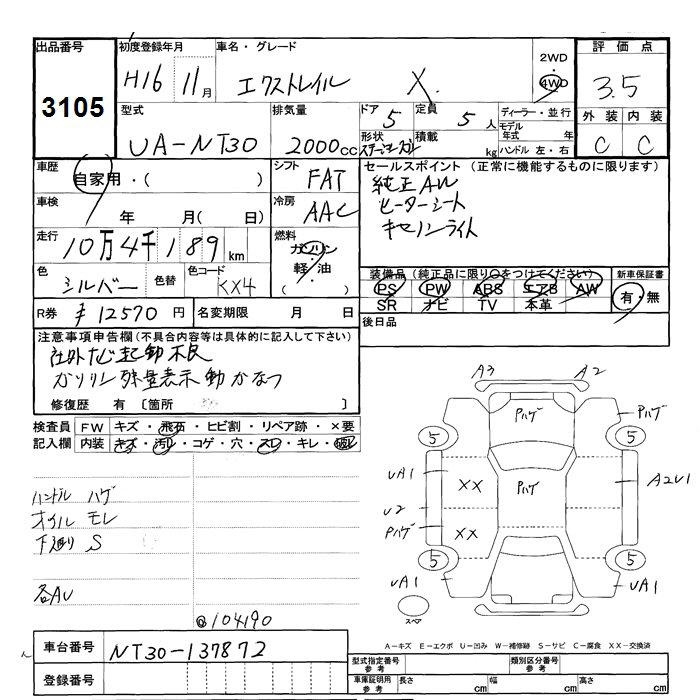 出品番号 初度登録年月 車名・グレード 2WD 評価点
3105 H16 11月 エクストレイル X. 4WD 3.5
型式 排気量 ドア 5 定員 5人 ディーラー・並行 外装 内装
UA-NT30 2000cc 形状 積載 kg モデル年式 年 ハンドル 左・右 C C
車歴 自家用・( ) シフト FAT セールスポイント (正常に機能するものに限ります)
純正AW
車検 年 月(日) 冷房 AAC ヒーターシート
キセノンライト
走行 10万4千189km 燃料 ガソリン・軽・油・( )
色 シルバー 色替 色コード KX4 装備品(純正品に限り〇をつけてください) 新車保証書
PS PW ABS エアB AW 有・無
SR ナビ TV 本革
R券 ¥12570円 名変期限 月 日 後日品
注意事項申告欄(不具合内容等は具体的に記入して下さい)
社外ナビ起動不良
ガソリン残量表示動かなつ
修復歴 有〔箇所 〕
検査員 FW キズ・飛石・ヒビ割・リペア跡・×要
記入欄 内装 キズ・汚レ・コゲ・穴・スレ・キレ・破レ
ハンドル ハゲ
オイル モレ
下廻り S
各AU
@104190
A3 A2
Pハゲ Pハゲ
5 5
UA1 XX Pハゲ A2U1
U2
Pハゲ XX
5 5
UA1 UA1
スペア
A-キズ E-エクボ U-凹み W-補修跡 S-サビ C-腐食 XX-交換済
車台番号 NT30-137872
登録番号
型式指定番号 参考 類別区分番号 参考
車庫証明用 参考 長さ cm 幅 cm 高さ cm